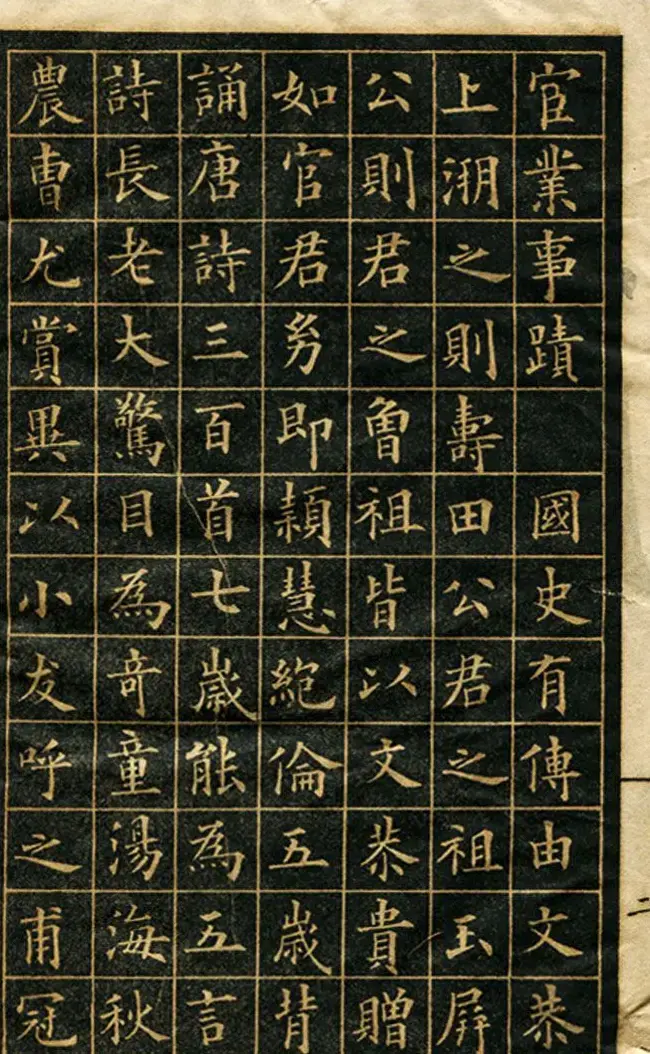 宦業事蹟 國史有傳由文恭
上溯之則壽田公君之祖玉屏
公則君之曾祖皆以文恭貴贈
如官君幼即穎慧絕倫五歲背
誦唐詩三百首七歲能為五言
詩長老大驚目為奇童湯海秋
農曹尤賞異以小友呼之甫冠
二